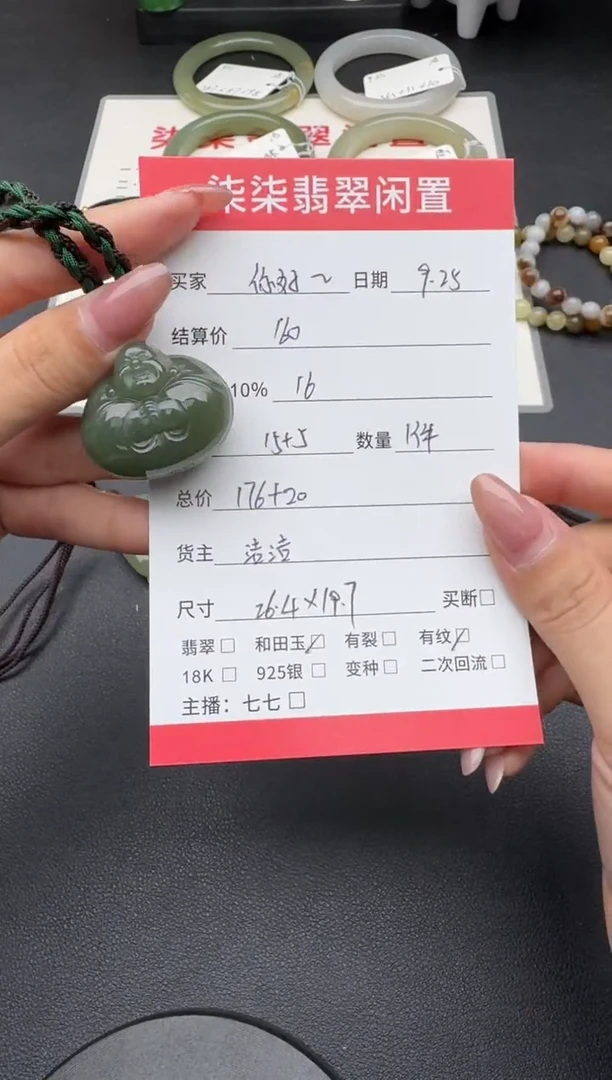 柒柒翡翠闲置
买家 你好~ 日期 9.25
结算价 160
10% 16
15+5 数量 1件
总价 176+20
货主 洁洁
尺寸 26.4×19.7 买断
翡翠 和田玉 有裂 有纹
18K 925银 变种 二次回流
主播：七七